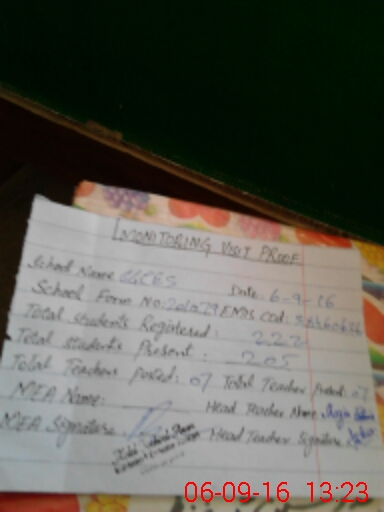 MONITORING VISIT PROOF
School Name GGCES Date: 6-9-16
School Form No: EMIS Cod:
Total Students Registered: 222
Total students Present: 205
Total Teachers posted: 07 Total Teacher Present: 07
MEA Name: Head Teacher Name
MEA Signature Head Teacher Signature
06-09-16 13:23